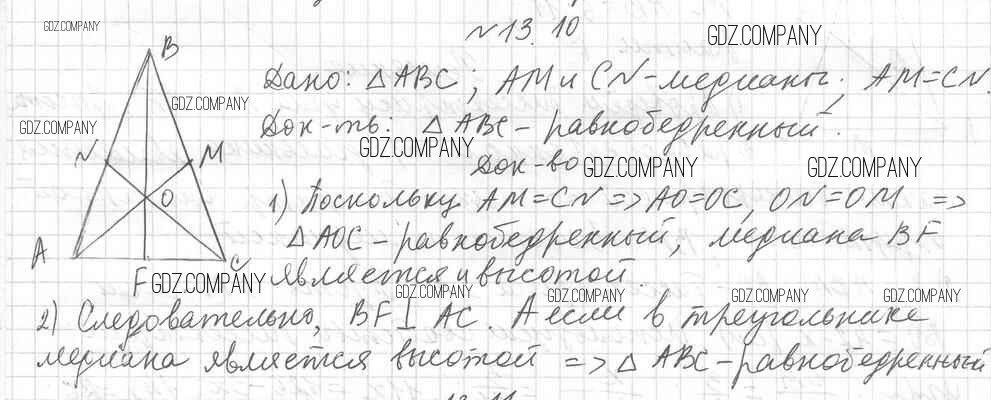 №13.10
GDZ.COMPANY
GDZ.COMPANY
B
Дано: △ABC; AM и CN-медианы; AM=CN.
GDZ.COMPANY
GDZ.COMPANY
Док-ть: △ABC - равнобедренный.
GDZ.COMPANY
N
M
Док-во
GDZ.COMPANY
GDZ.COMPANY
O
1) Поскольку AM=CN => AO=OC, ON=OM =>
△AOC - равнобедренный, медиана BF
A
F
C
GDZ.COMPANY
является и высотой.
GDZ.COMPANY
GDZ.COMPANY
GDZ.COMPANY
GDZ.COMPANY
2) Следовательно, BF⊥AC. А если в треугольнике
медиана является высотой => △ABC - равнобедренный